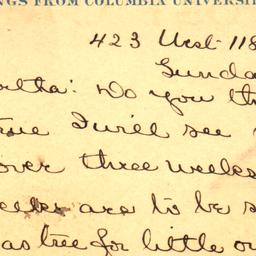 NGS FROM COLUMBIA UNIVERSI
423 West 118
Sunda
: Do you th
I will see
over three weeks
are to be s
as tree for little or